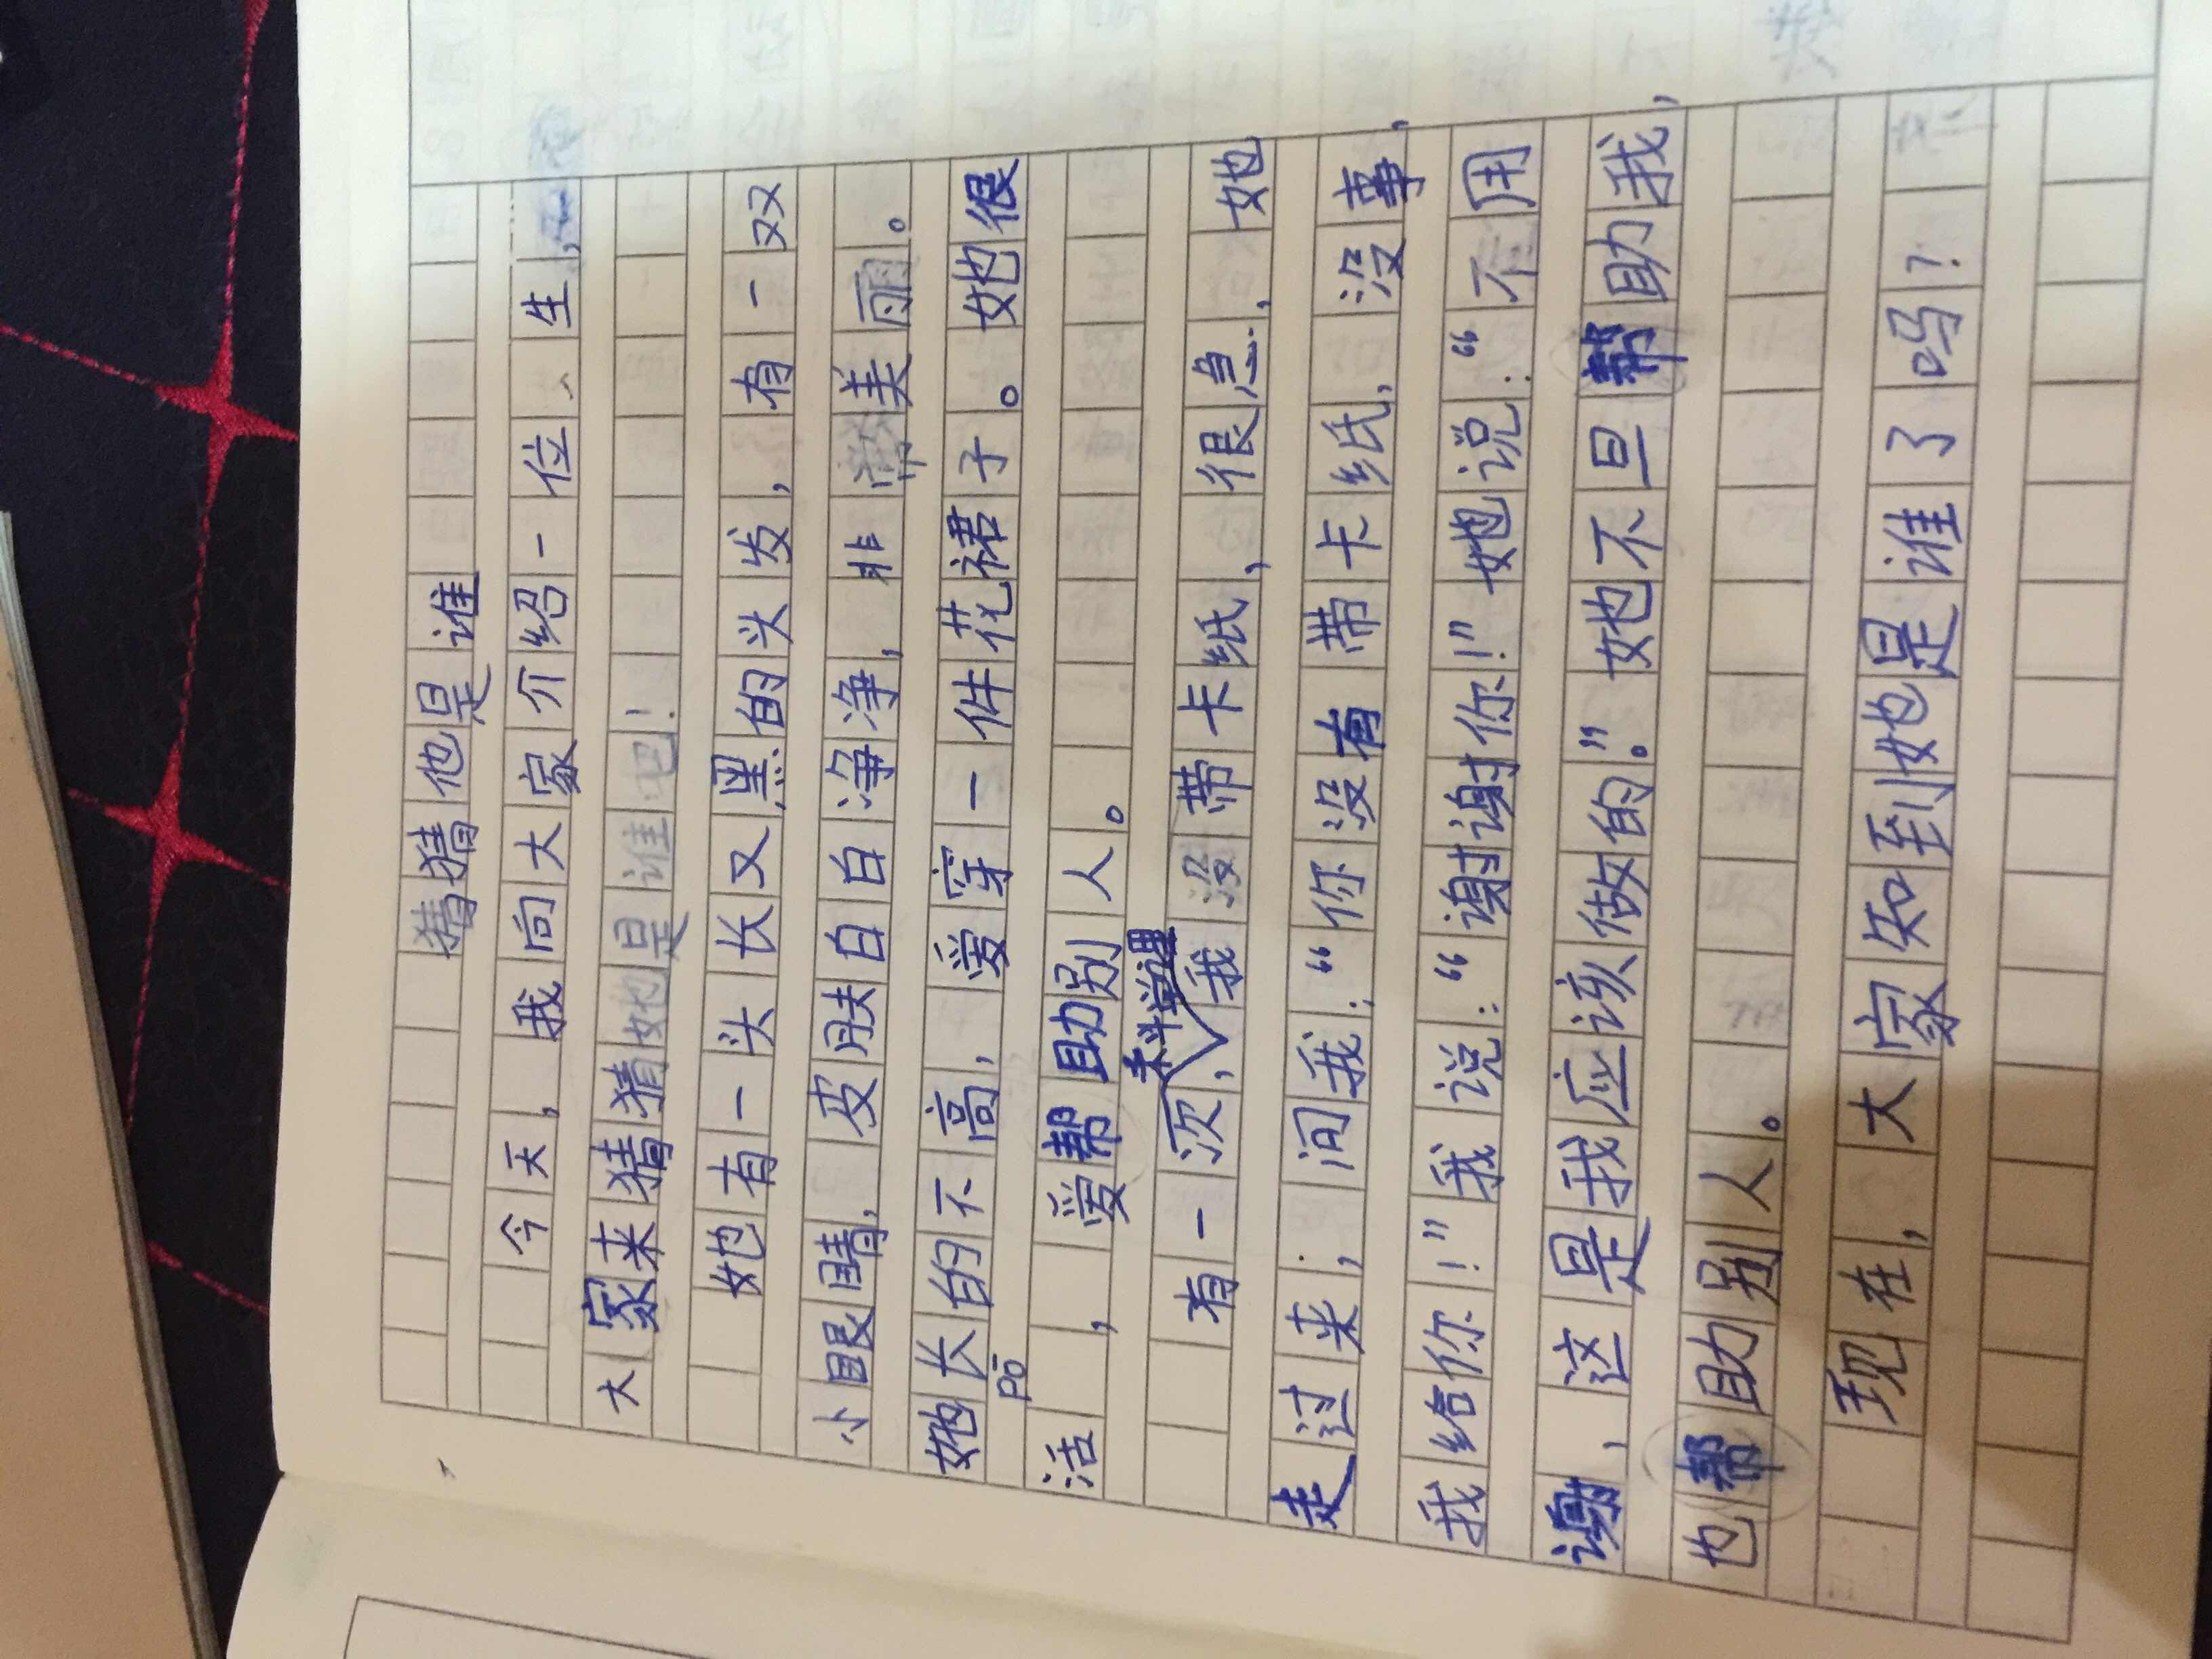 猜猜他是谁
今天，我向大家介绍一位、生，
大家来猜猜她是谁吧！
她有一头长又黑的头发，有一双
小眼睛，皮肤白白净净，非常美丽。
她长的不高，爱穿一件花裙子。她很
活pō，爱帮助别人。
有一次，科学课我没带卡纸，很急，她
走过来，问我：“你没有带卡纸，没事，
我给你！”我说：“谢谢你！”她说：“不用
谢，这是我应该做的。”她不旦帮助我，
也帮助别人。
现在，大家知到她是谁了吗？